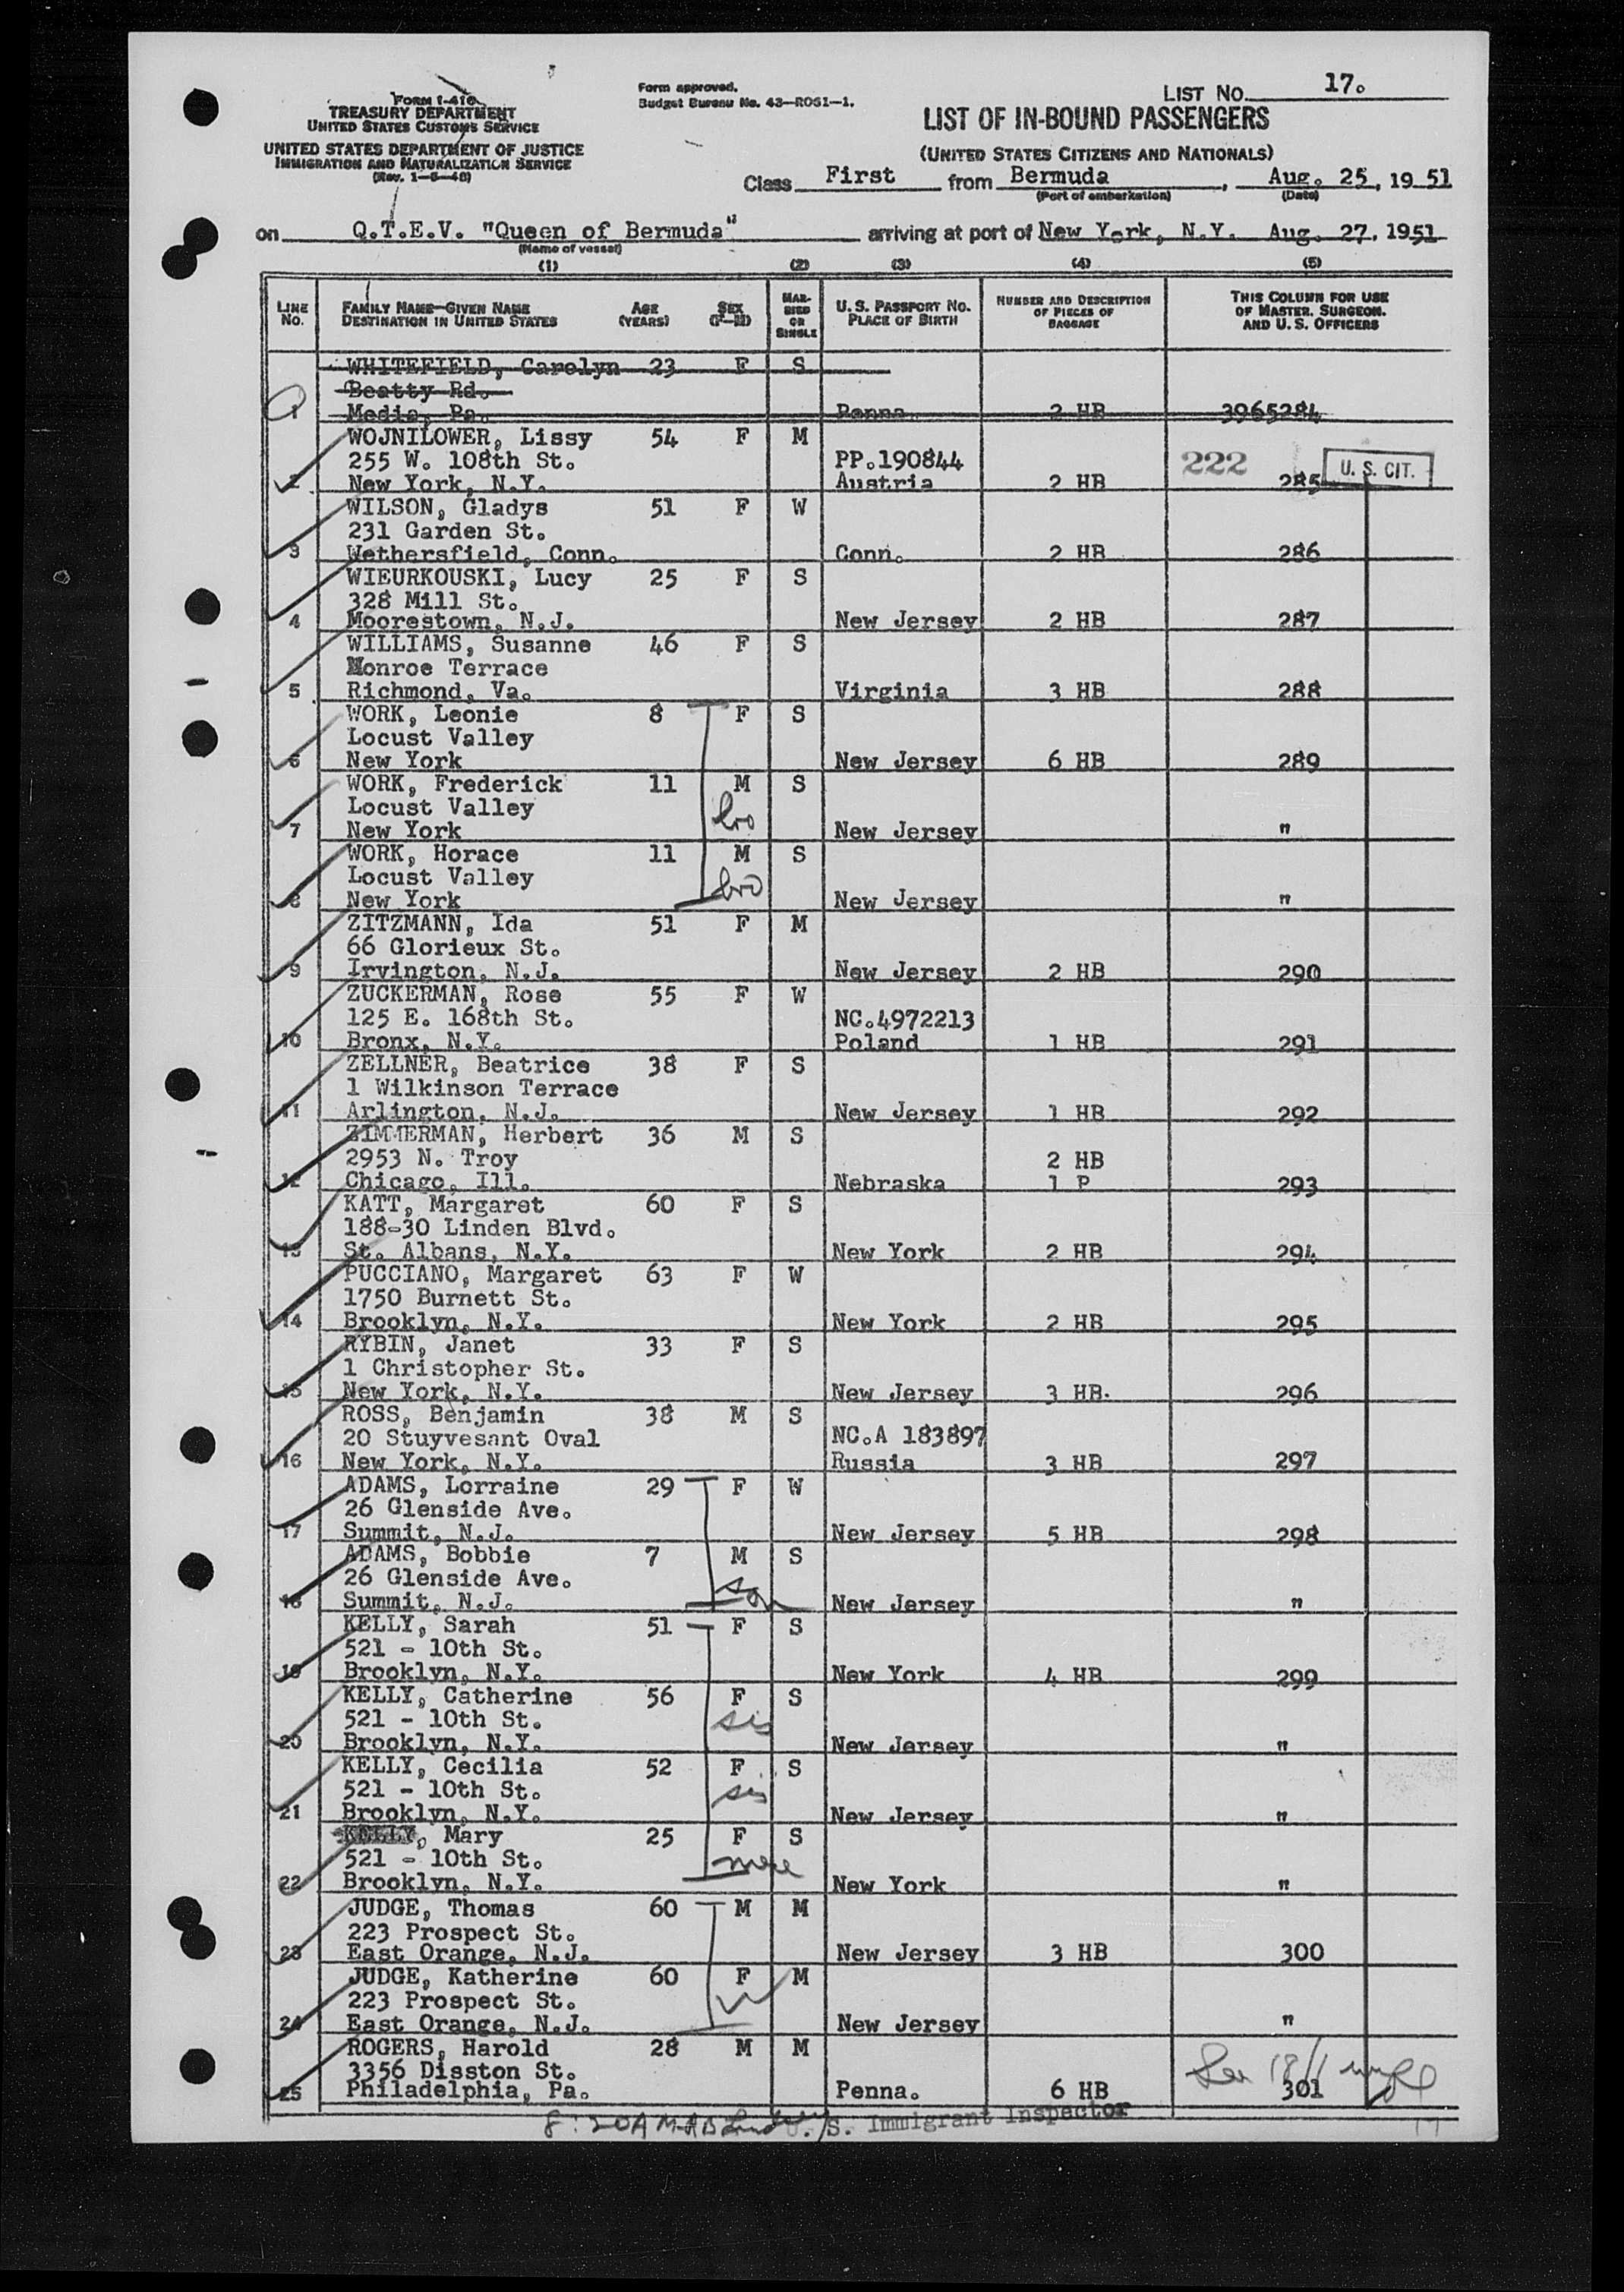 LIST NO. 17.
FORM I-418
TREASURY DEPARTMENT
UNITED STATES CUSTOMS SERVICE
UNITED STATES DEPARTMENT OF JUSTICE
IMMIGRATION AND NATURALIZATION SERVICE
(Rev. 1-6-48)
Form approved.
Budget Bureau No. 43—R051—1.
LIST OF IN-BOUND PASSENGERS
(UNITED STATES CITIZENS AND NATIONALS)
Class First from Bermuda, Aug. 25, 1951
(Port of embarkation) (Date)
on Q.T.E.V. "Queen of Bermuda" arriving at port of New York, N.Y. Aug. 27, 1951
(Name of vessel)
(1) (2) (3) (4) (5)
LINE No. FAMILY NAME—GIVEN NAME DESTINATION IN UNITED STATES AGE (YEARS) SEX (F—M) MARRIED OR SINGLE U. S. PASSPORT NO. PLACE OF BIRTH NUMBER AND DESCRIPTION OF PIECES OF BAGGAGE THIS COLUMN FOR USE OF MASTER, SURGEON, AND U. S. OFFICERS
WHITEFIELD, Carolyn 23 F S
Beatty Rd.
1 Media, Pa. Penna. 2 HB 3965284
WOJNILOWER, Lissy 54 F M
255 W. 108th St. PP.190844 222 U. S. CIT.
2 New York, N.Y. Austria 2 HB 285
WILSON, Gladys 51 F W
231 Garden St.
3 Wethersfield, Conn. Conn. 2 HB 286
WIEURKOUSKI, Lucy 25 F S
328 Mill St.
4 Moorestown, N.J. New Jersey 2 HB 287
WILLIAMS, Susanne 46 F S
Monroe Terrace
5 Richmond, Va. Virginia 3 HB 288
WORK, Leonie 8 F S
Locust Valley
6 New York New Jersey 6 HB 289
WORK, Frederick 11 M S
Locust Valley bro
7 New York New Jersey "
WORK, Horace 11 M S
Locust Valley bro
8 New York New Jersey "
ZITZMANN, Ida 51 F M
66 Glorieux St.
9 Irvington, N.J. New Jersey 2 HB 290
ZUCKERMAN, Rose 55 F W
125 E. 168th St. NC.4972213
10 Bronx, N.Y. Poland 1 HB 291
ZELLNER, Beatrice 38 F S
1 Wilkinson Terrace
11 Arlington, N.J. New Jersey 1 HB 292
ZIMMERMAN, Herbert 36 M S
2953 N. Troy 2 HB
12 Chicago, Ill. Nebraska 1 P 293
KATT, Margaret 60 F S
188-30 Linden Blvd.
13 St. Albans, N.Y. New York 2 HB 294
PUCCIANO, Margaret 63 F W
1750 Burnett St.
14 Brooklyn, N.Y. New York 2 HB 295
RYBIN, Janet 33 F S
1 Christopher St.
15 New York, N.Y. New Jersey 3 HB. 296
ROSS, Benjamin 38 M S
20 Stuyvesant Oval NC.A 183897
16 New York, N.Y. Russia 3 HB 297
ADAMS, Lorraine 29 F W
26 Glenside Ave.
17 Summit, N.J. New Jersey 5 HB 298
ADAMS, Bobbie 7 M S
26 Glenside Ave. son
18 Summit, N.J. New Jersey "
KELLY, Sarah 51 F S
521 - 10th St.
19 Brooklyn, N.Y. New York 4 HB 299
KELLY, Catherine 56 F S
521 - 10th St. sis
20 Brooklyn, N.Y. New Jersey "
KELLY, Cecilia 52 F S
521 - 10th St. sis
21 Brooklyn, N.Y. New Jersey "
KELLY, Mary 25 F S
521 - 10th St.
22 Brooklyn, N.Y. New York "
JUDGE, Thomas 60 M M
223 Prospect St.
23 East Orange, N.J. New Jersey 3 HB 300
JUDGE, Katherine 60 F M
223 Prospect St. W
24 East Orange, N.J. New Jersey "
ROGERS, Harold 28 M M
3356 Disston St.
25 Philadelphia, Pa. Penna. 6 HB 301
8:20AM U.S. Immigrant Inspector